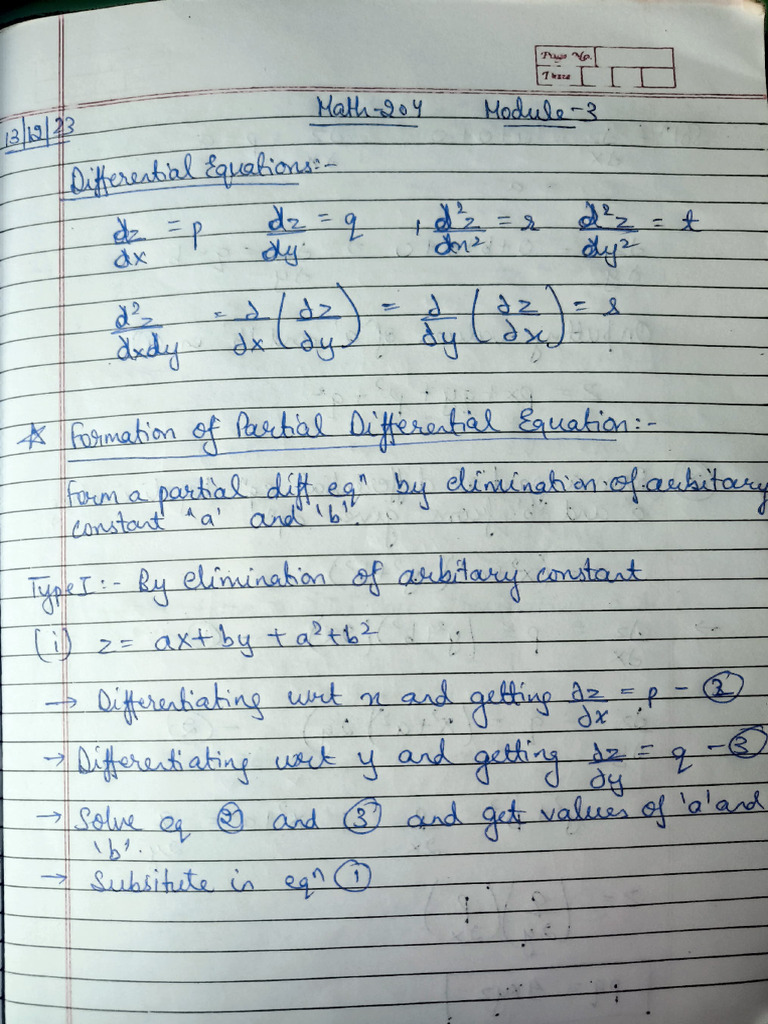 Page No.
Date
Math-204 Module-3
13/12/23
Differential Equations:-
dz/dx = p dz/dy = q , d²z/dx² = r d²z/dy² = t
d²z/dxdy = ∂/∂x (∂z/∂y) = ∂/∂y (∂z/∂x) = s
☆ Formation of Partial Differential Equation:-
Form a partial diff eqⁿ by elimination of arbitary
constant 'a' and 'b'
Type I:- By elimination of arbitary constant
(i) z = ax + by + a² + b²
→ Differentiating wrt x and getting ∂z/∂x = p - ②
→ Differentiating wrt y and getting ∂z/∂y = q - ③
→ Solve eq ② and ③ and get values of 'a' and
'b'.
→ Subsitute in eqⁿ ①